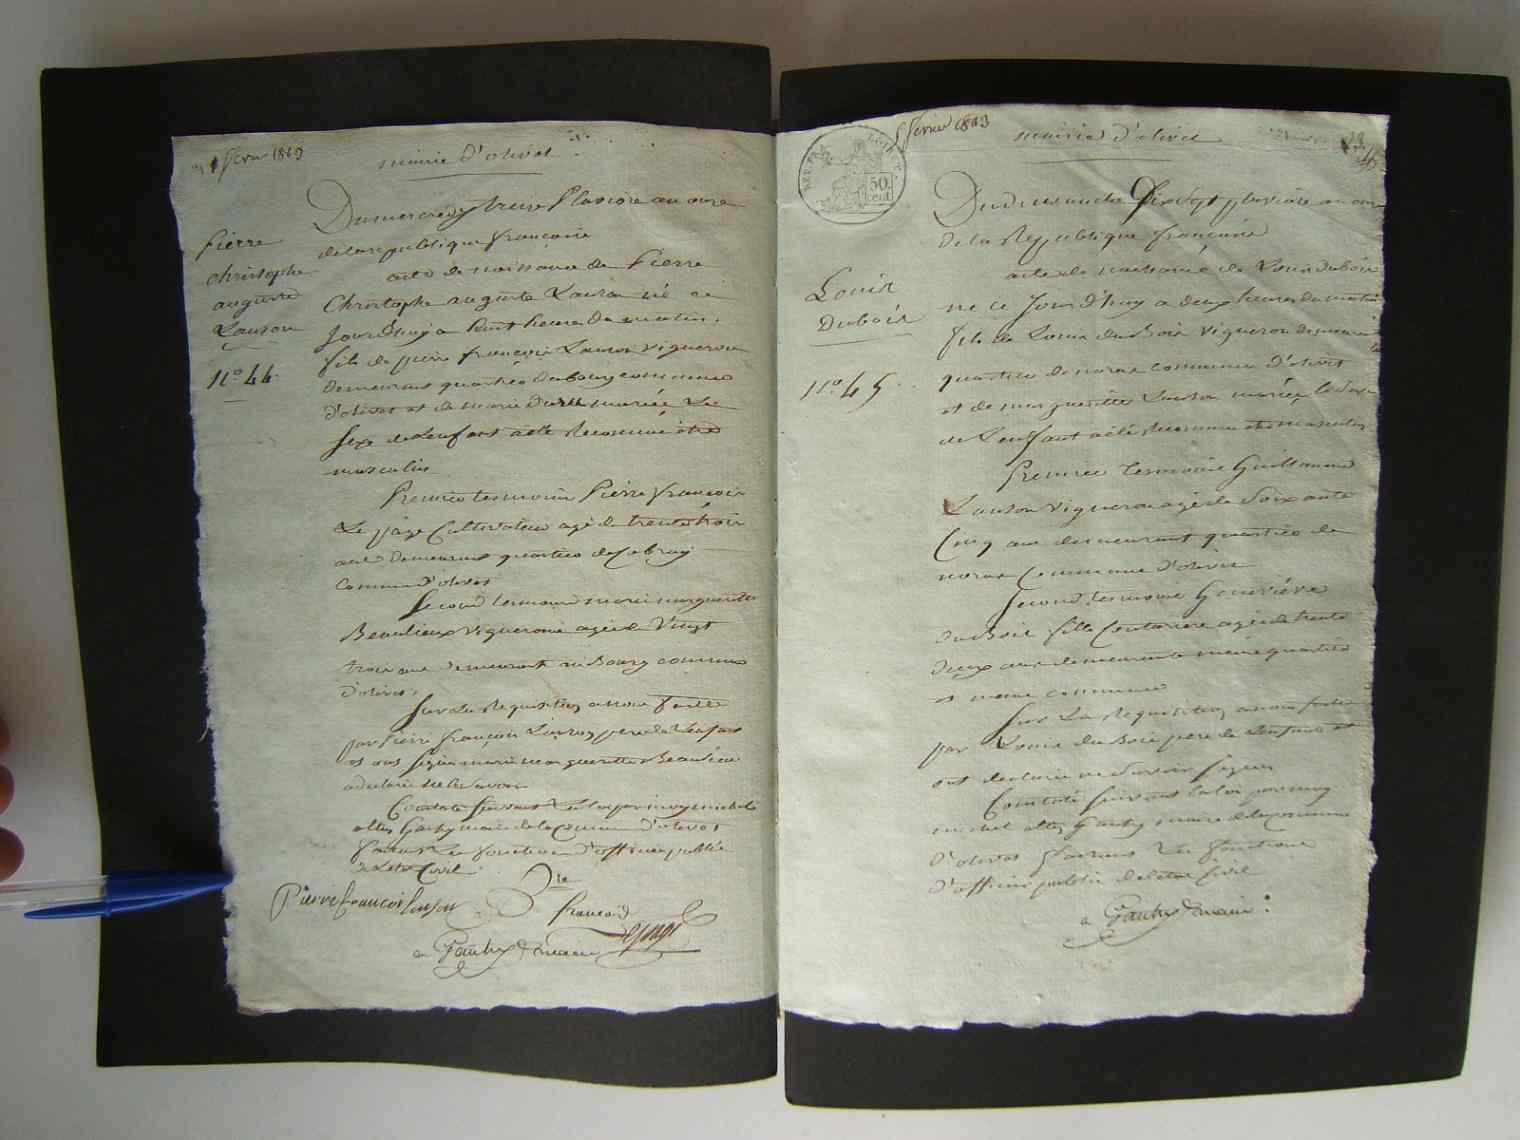 fevrier 1803
mairie d'olivet
Du mercredy treize Pluviose an onze
de la republique francaise
acte de naissance de Pierre
Christophe auguste Lauson né ce
jourd'huy a huit heure du matin.
fils de pierre françois Lauson vigneron
demeurant quartier du bourg commune
d'olivet et de marie mariée Le
sexe de Lenfant a eté Reconnu etre
masculin
Pierre
christophe
auguste
Lauson
N° 44.
Premier temoin Pierre francois
Le page Cultivateur agé de trente trois
ans demeurant quartier de
commune d'olivet
Second temoin marie marguerite
Beaulieux vigneronne agée de Vingt
trois ans demeurant au Bourg commune
d'olivet.
Sur La Requisition a nous faitte
par Pierre françois Lauson pere de Lenfant
et ont signé marie margueritte Beaulieu
a declaré ne le savoir
Constaté suivant La loi par moy michel
altin Gauthy maire de la Commune d'olivet
faisant Les fonctions d'officier public
de Letat Civil
Pierre francois Lauson
francois
Lepage
Gauthy maire
5 fevrier 1803
mairie d'olivet
REP. FRA.
50
cent
Du dimanche Dix sept pluviose an onze
de la Republique francaise
acte de naissance de Louis dubois
né ce Jour d'huy a deux heures du matin
fils de Louis du Bois vigneron demeurant
quartier de noras commune d'olivet
et de margueritte Lauson mariée le sexe
de Lenfant a été Reconnu etre masculin
Louis
Dubois
N° 45.
Premier temoin Guillaume
Lauson vigneron agé de soixante
Cinq ans demeurant quartier de
noras Commune d'olivet
Second temoin Genevieve
du Bois fille Couturiere agée de trente
deux ans demeurante meme quartier
et meme commune
Sur La Requisition a nous faitte
par Louis du Bois pere de Lenfant et
ont declaré ne savoir signer
Constaté suivant la loi par moy
michel altin Gauthy maire de la commune
d'olivet faisant Les fonctions
d'officier public de letat Civil
Gauthy maire